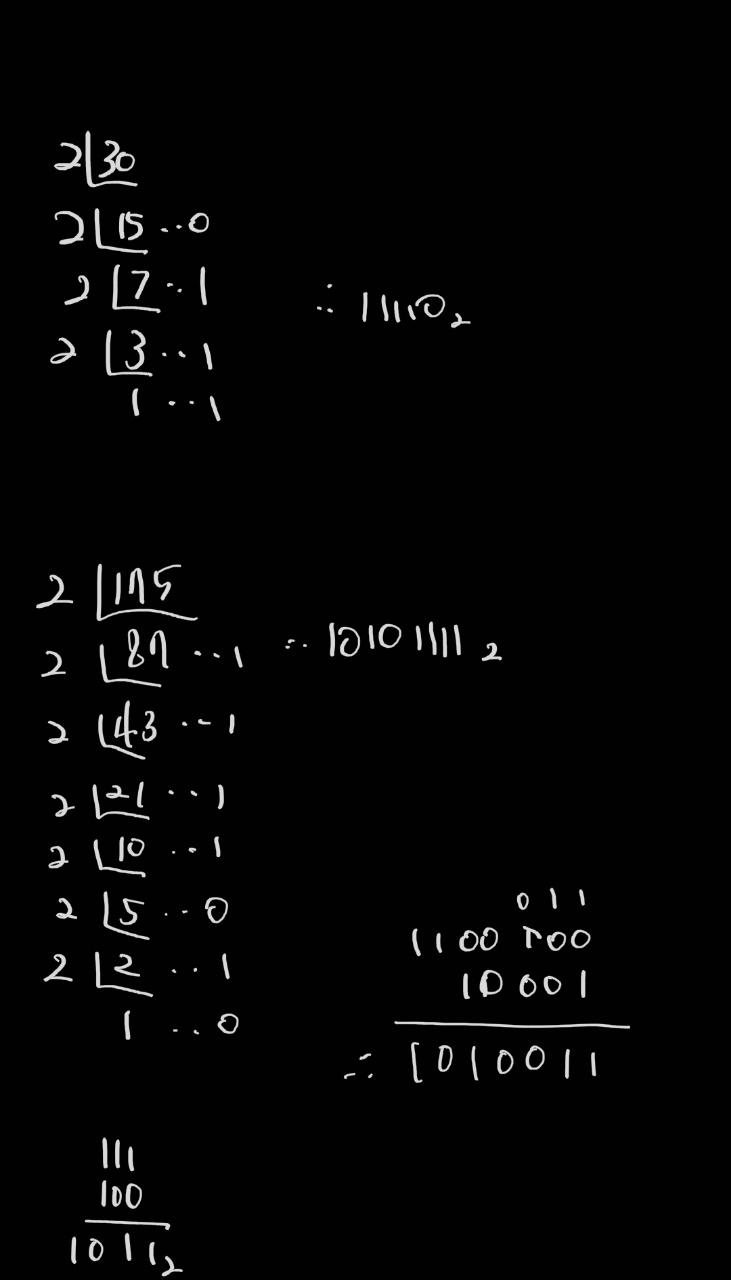 2 30
2 15 ..0
2 7 .. 1
∴ 11110₂
2 3 .. 1
1 .. 1
2 175
2 87 .. 1
∴ 10101111₂
2 43 .. 1
2 21 .. 1
2 10 .. 1
2 5 .. 0
2 2 .. 1
1 .. 0
0 1 1
1100 100
10 001
∴ 1010011
111
100
1011₂